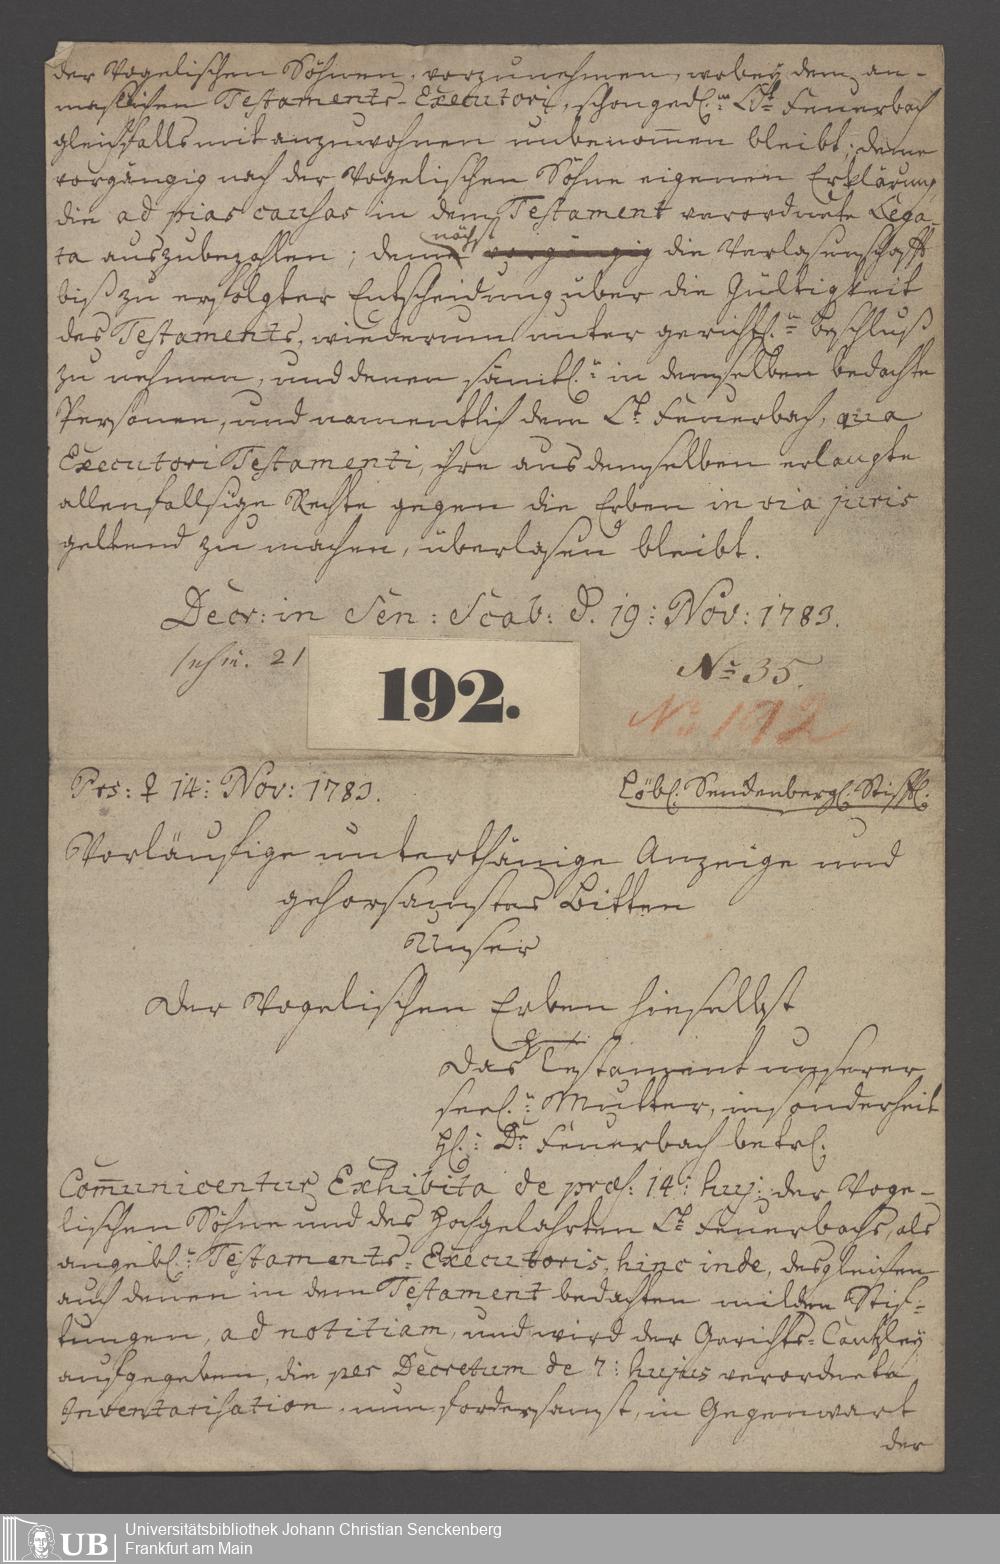 der Vogelischen Söhnen, vorzunehmen, wobey dem an-
maslichen Testaments-Executori, schongedl.n Lt. Feuerbach
gleichfalls mit anzuwohnen unbenom̄en bleibt; denen
vorgängig nach der Vogelischen Söhne eigenen Erklärung,
die ad pias causas in dem Testament verordnete Lega-
ta auszubezahlen; demnächst vorgängig die Verlasenschafft
biß zu erfolgter Entscheidung über die Gültigkeit
des Testaments, wiederum unter gerichtl.n Beschluß
zu nehmen, und denen sämtl.n in demselben bedachte
Personen, und namentlich dem Lt. Feuerbach, qua
Executori Testamenti, ihre aus demselben erlangte
allenfallsige Rechte gegen die Erben in via juris
geltend zu machen, überlasen bleibt.
Decr: in Sen: Scab: d. 19: Nov: 1783.
21
192.
No 35.
No 192
Prs: ♀ 14: Nov: 1783.
Löbl. Senckenbergl. Stifft.
Vorläufige unterthänige Anzeige und
gehorsamstes Bitten
Unser
der Vogelischen Erben hieselbst
das Testament unserer
seel.n Mutter, insonderheit
H. Dr Feuerbach betrl.
Com̄unicentur Exhibita de præs: 14: huj: der Voge-
lischen Söhne und des Hochgelahrten Lt. Feuerbachs, als
angebl.n Testaments-Executoris, hinc inde, desgleichen
auch denen in dem Testament bedachten milden Stif-
tungen, ad notitiam, und wird der Gerichts-Cantzley
aufgegeben, die per Decretum de 7: hujus verordnete
Inventarisation, nun fordersamst, in Gegenwart
der
UB
Universitätsbibliothek Johann Christian Senckenberg
Frankfurt am Main